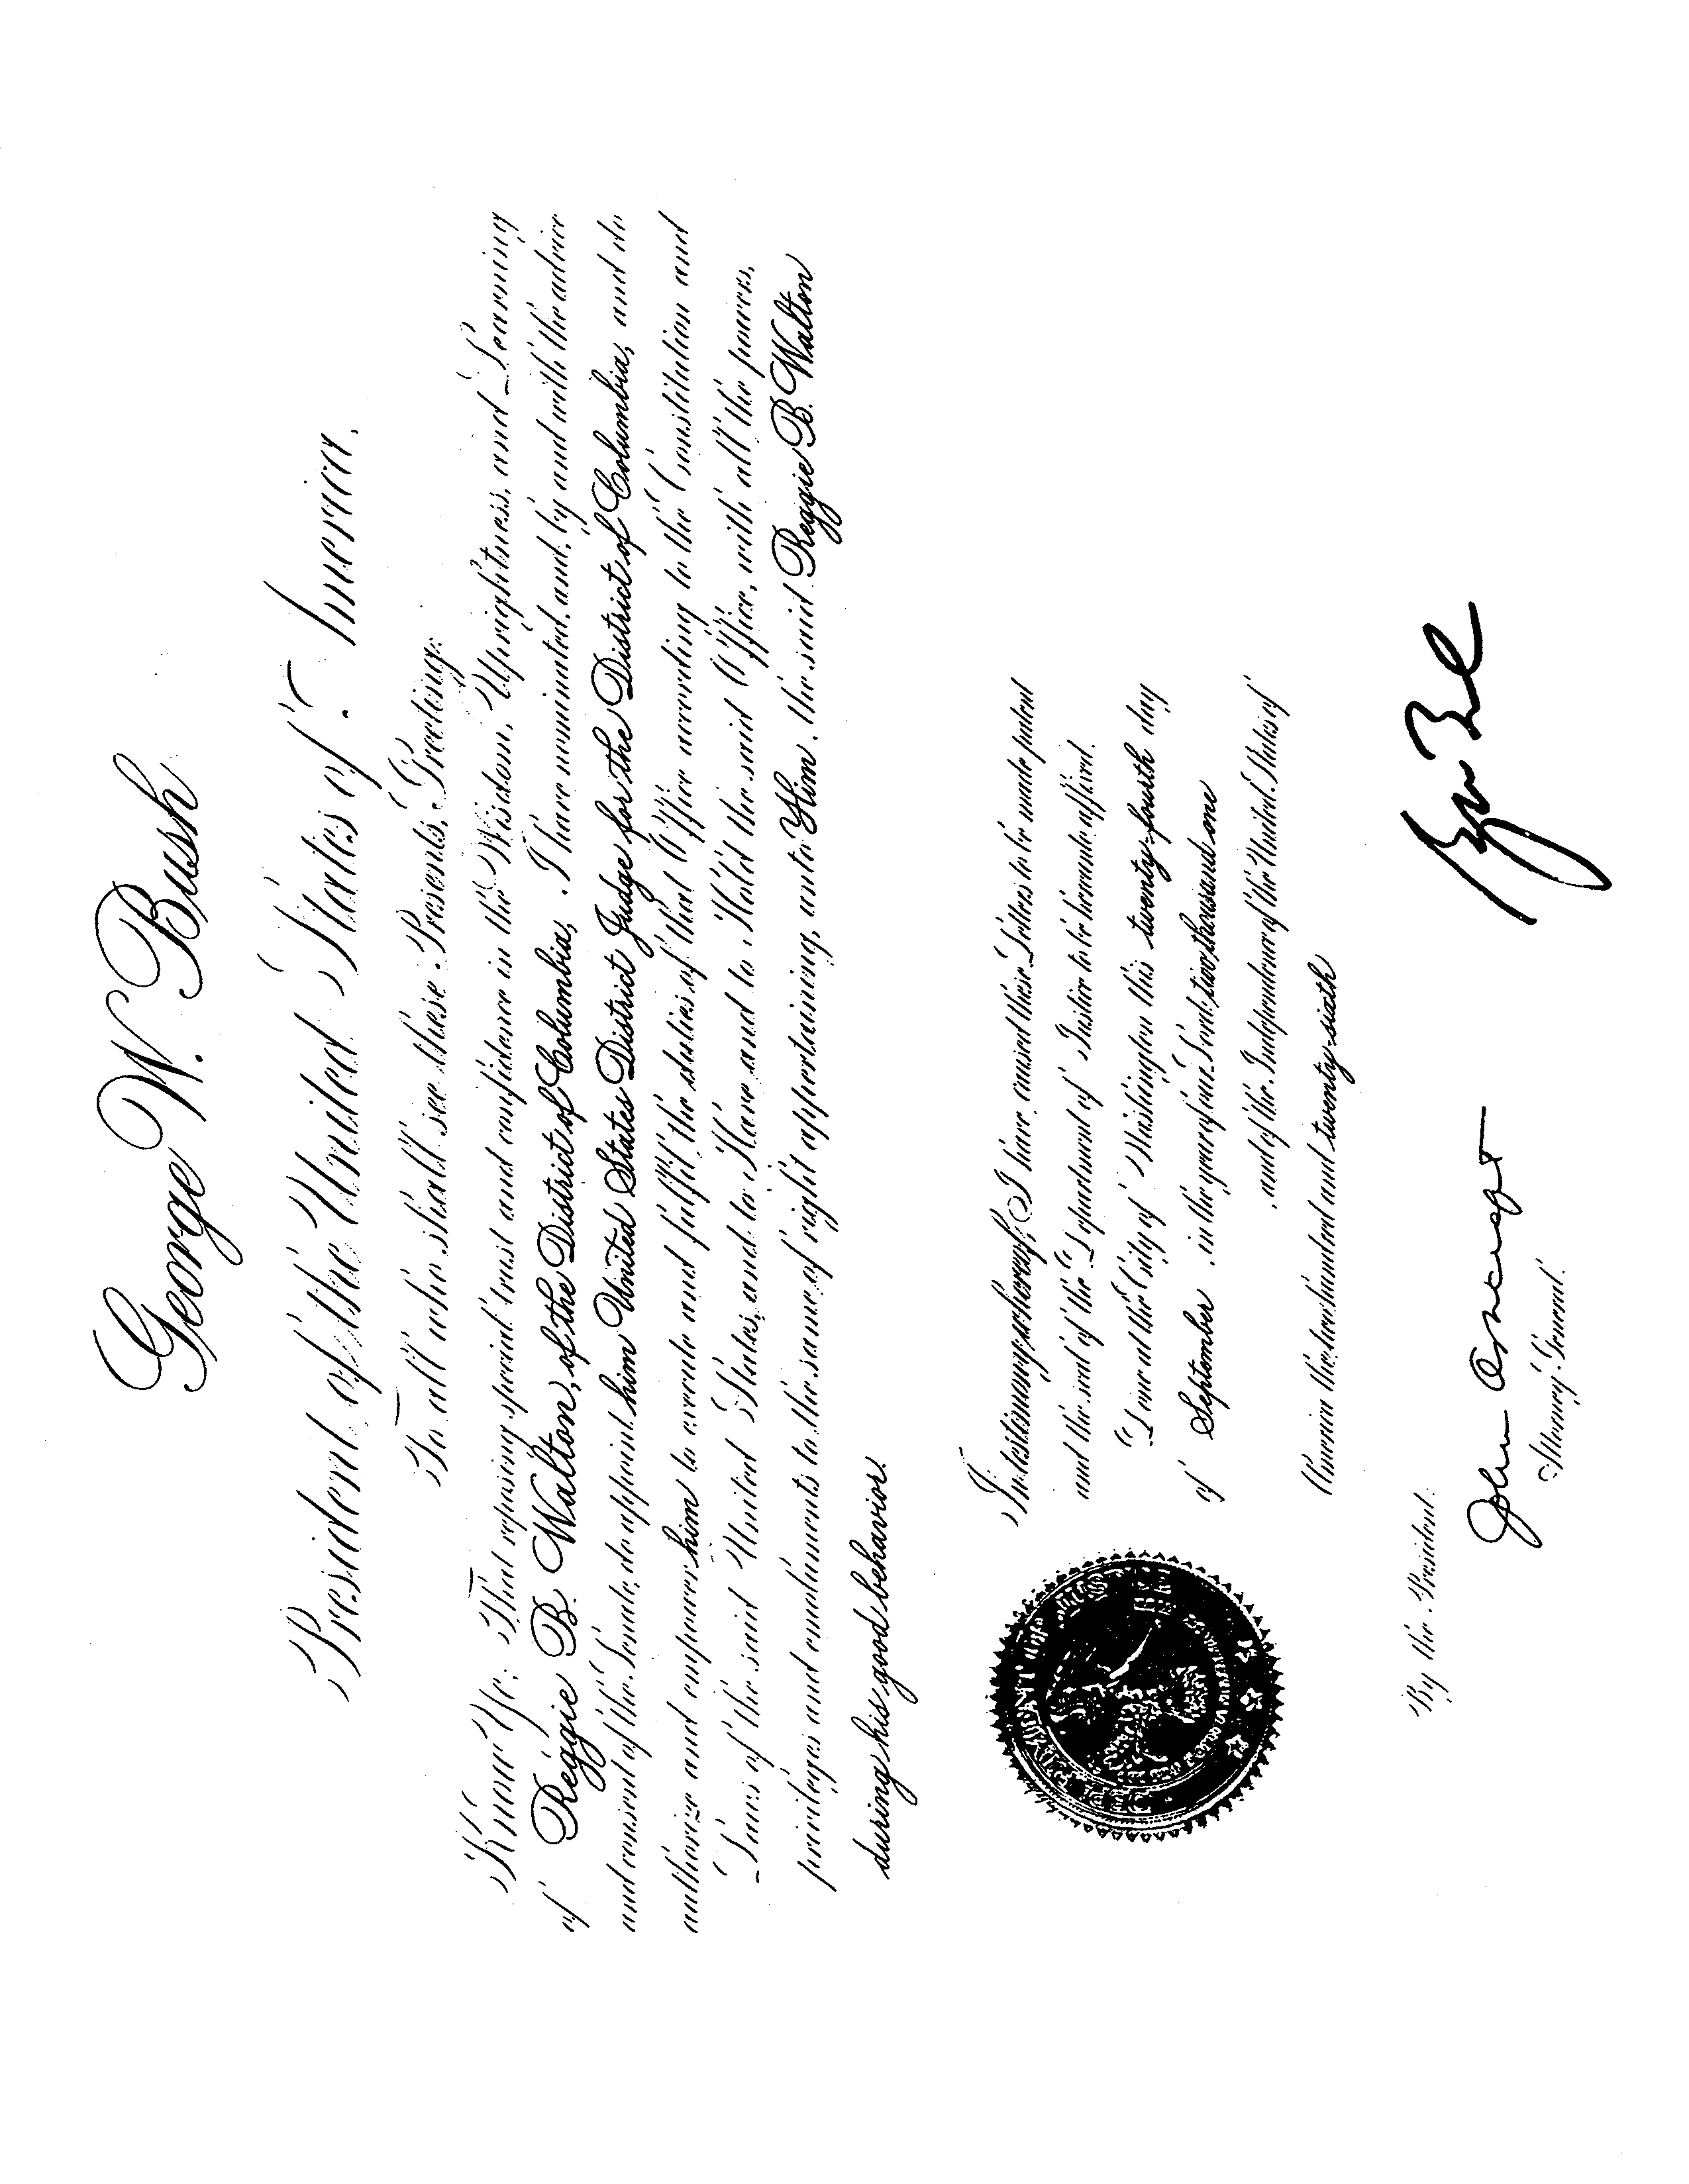 George W. Bush
President of the United States of America.
To all who shall see these Presents, Greeting:
Know Ye; That reposing special trust and confidence in the Wisdom, Uprightness, and Learning
of Reggie B. Walton, of the District of Columbia, I have nominated, and, by and with the advice
and consent of the Senate, do appoint him United States District Judge for the District of Columbia, and do
authorize and empower him to execute and fulfil the duties of that Office according to the Constitution and
Laws of the said United States, and to Have and to Hold the said Office, with all the powers,
privileges and emoluments to the same of right appertaining, unto Him, the said Reggie B. Walton
during his good behavior.
In testimony whereof, I have caused these Letters to be made patent
and the seal of the Department of Justice to be hereunto affixed.
Done at the City of Washington this twenty-fourth day
of September, in the year of our Lord two thousand one
, and of the Independence of the United States of
America the two hundred and twenty-sixth
By the President:
John Ashcroft
Attorney General.